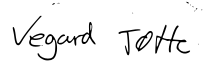 Vegard JØtte